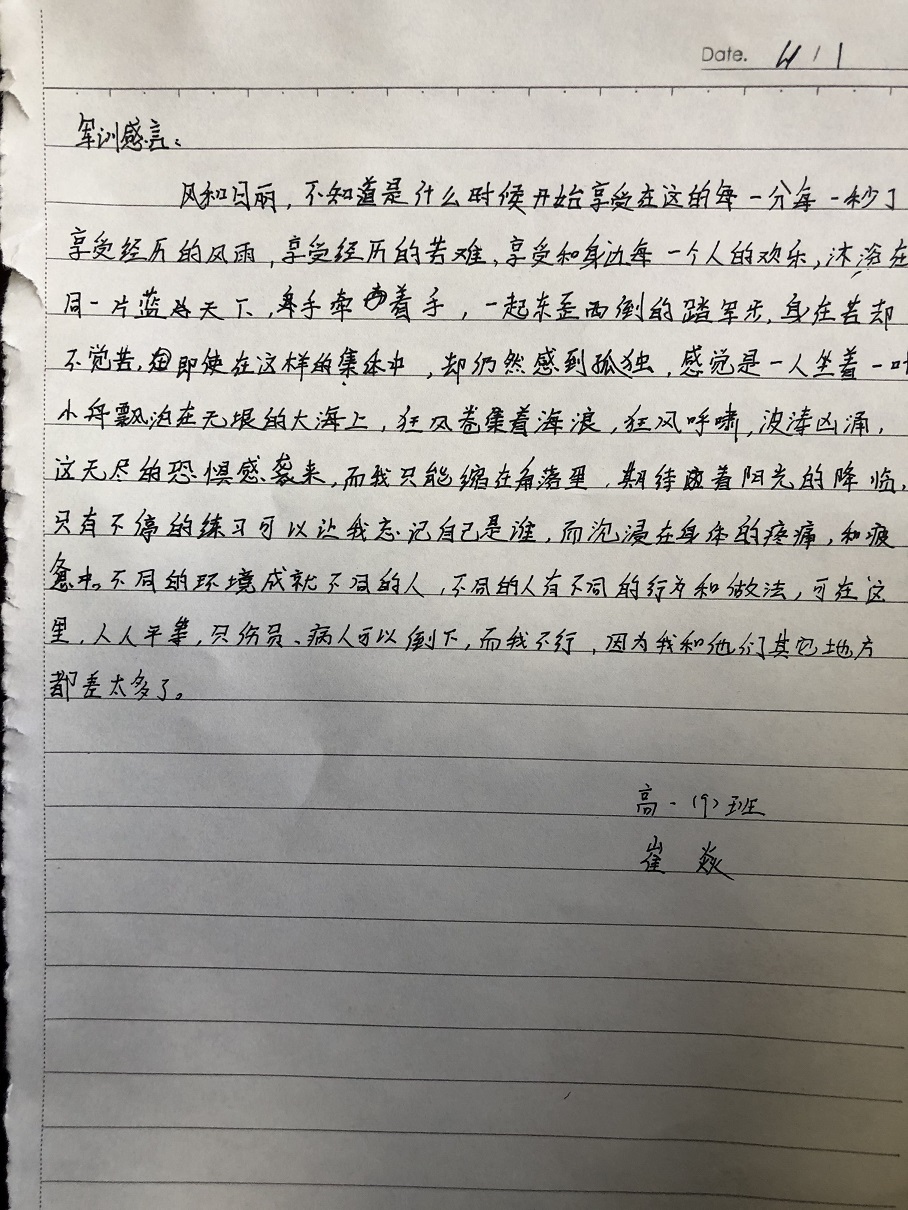 Date. 4 / 1
军训感言：
风和日丽，不知道是什么时候开始享受在这的每一分每一秒了
享受经历的风雨，享受经历的苦难，享受和身边每一个人的欢乐，沐浴在
同一片蓝天下，牵手牵着手，一起东歪西倒的踏军步，身在苦却
不觉苦，即使在这样的集体中，却仍然感到孤独，感觉是一人坐着一叶
小舟飘泊在无垠的大海上，狂风卷集着海浪，狂风呼啸，波涛凶涌，
这无尽的恐惧感袭来，而我只能缩在角落里，期待着阳光的降临，
只有不停的练习可以让我忘记自己是谁，而沉浸在身体的疼痛，和疲
惫中。不同的环境成就不同的人，不同的人有不同的行为和做法，可在这
里，人人平等，只伤员、病人可以倒下，而我不行，因为我和他们其它地方
都差太多了。
高一（9）班
崔焱